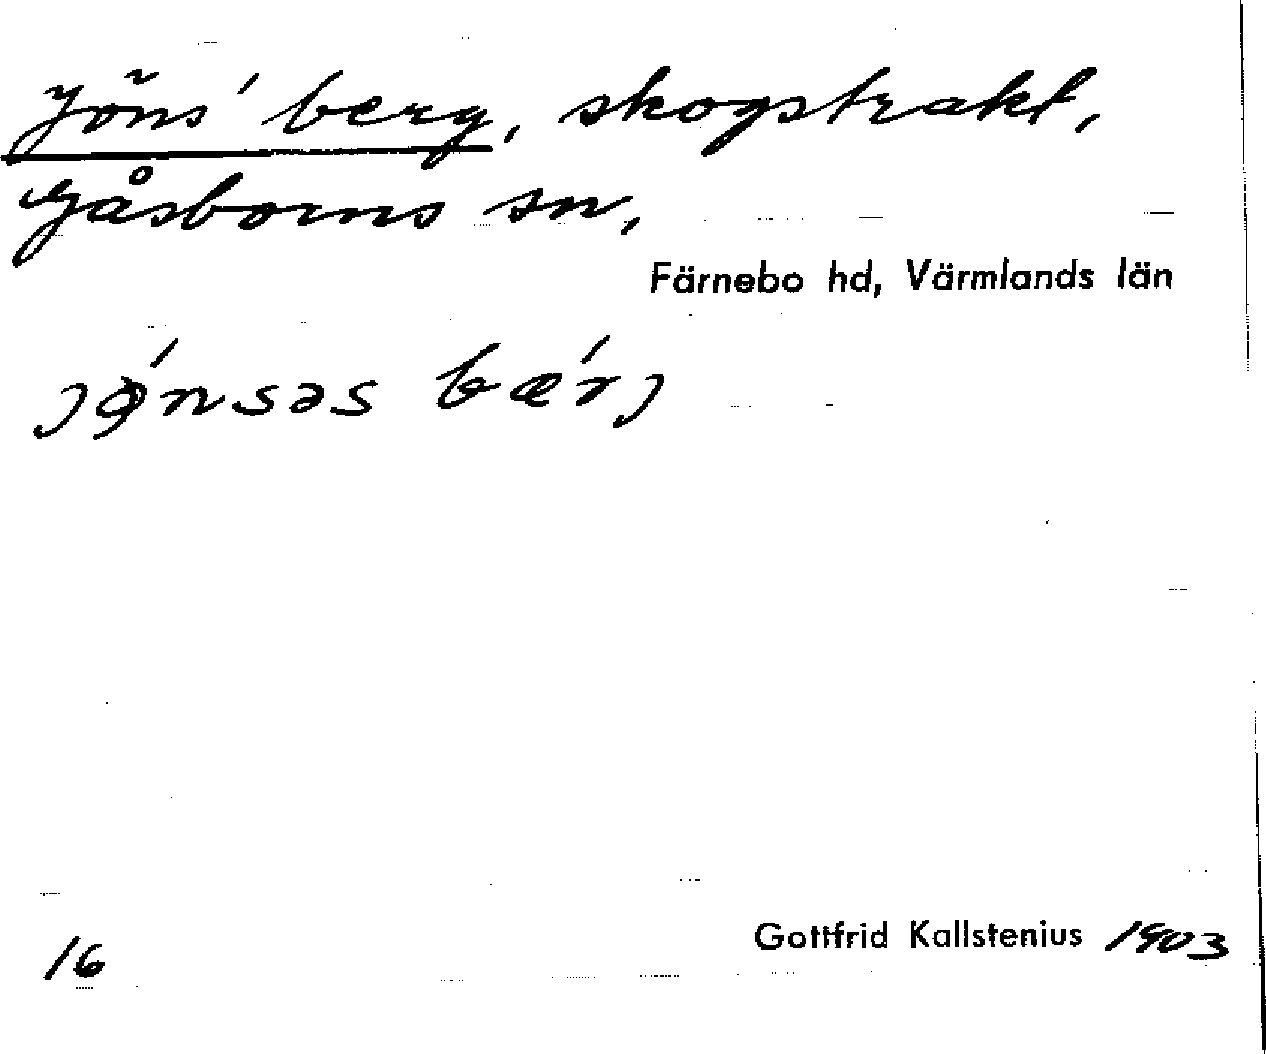 Jöns' berg, skogstrakt,
Gåsborns sn,
Färnebo hd, Värmlands län
jǿnsəs bǽrj
16
Gottfrid Kallstenius 1903